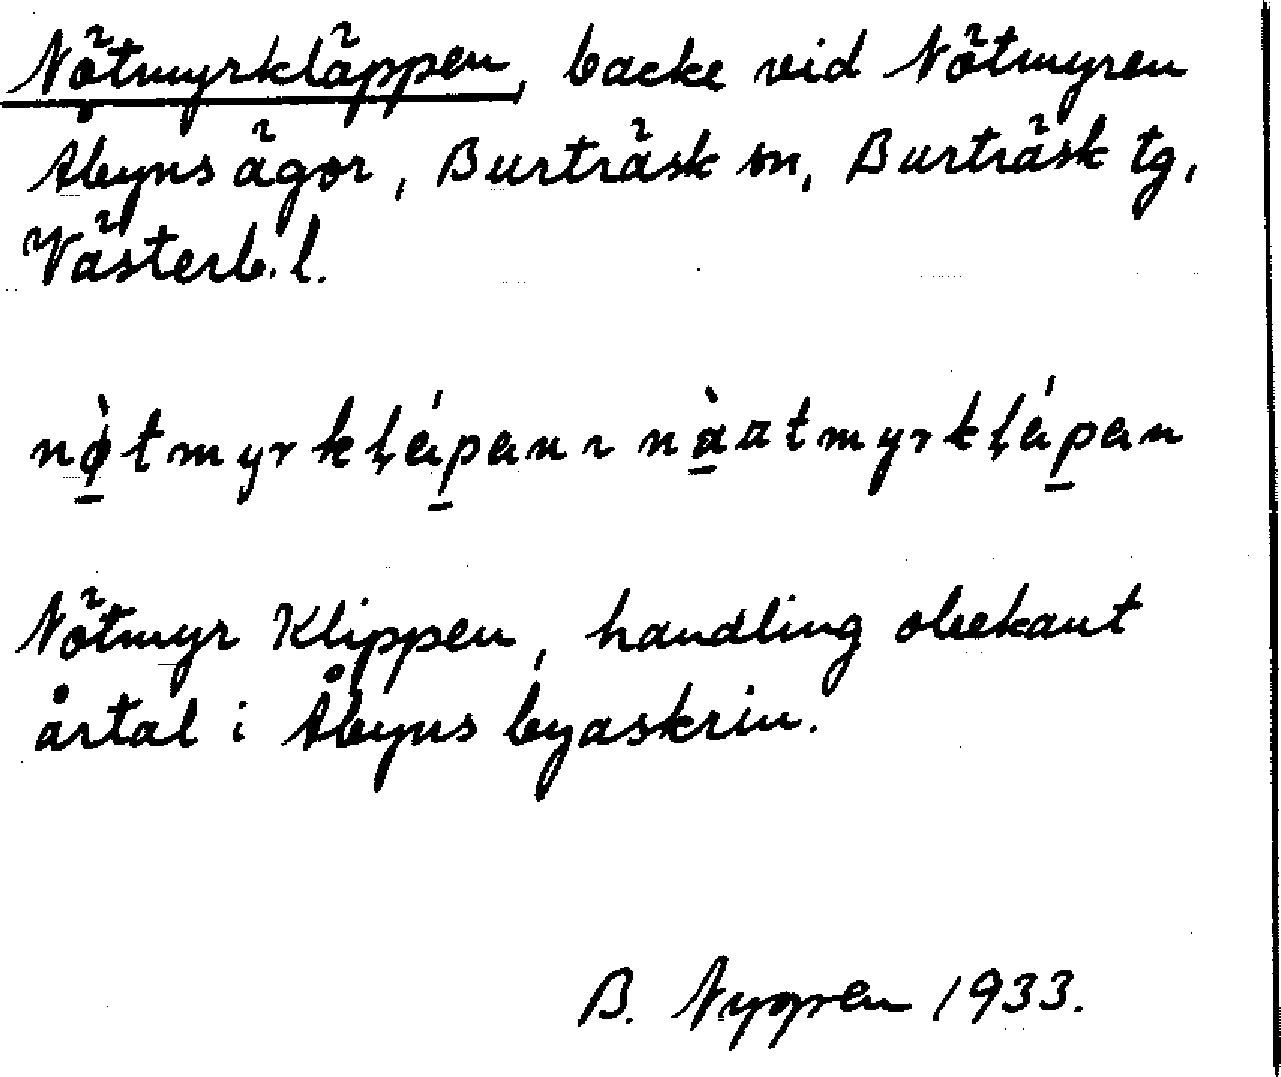 Nötmyrkläppen, backe vid Nötmyren
Åbyns ägor, Burträsk sn, Burträsk tg,
Västerb. l.
Nötmyr Klippen, handling obekant
årtal i Åbyns byaskrin.
B. Nygren 1933.